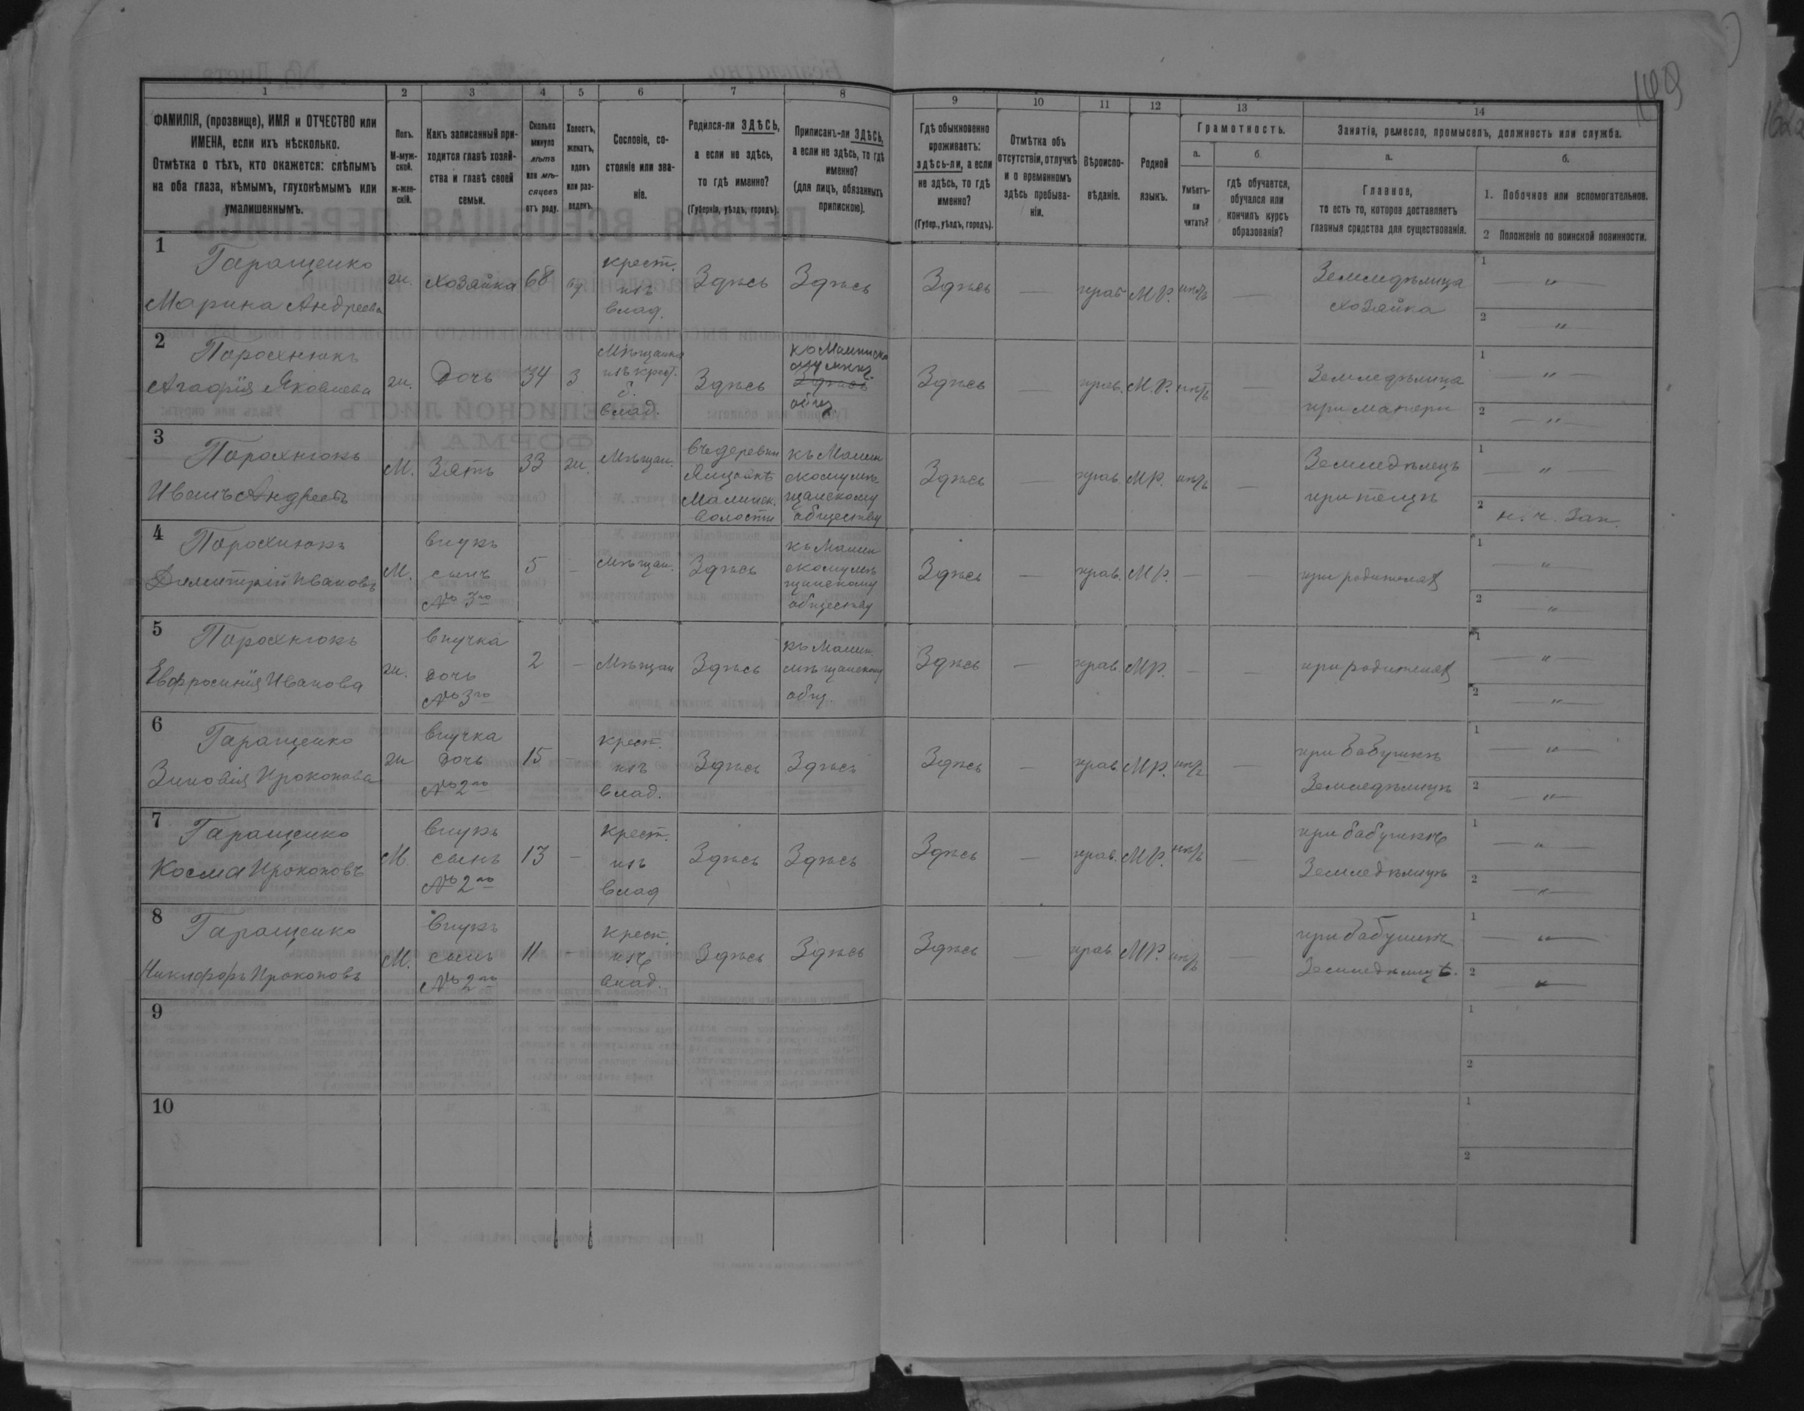 149
1 2 3 4 5 6 7 8 9 10 11 12 13 14
ФАМИЛІЯ, (прозвище), ИМЯ и ОТЧЕСТВО или
ИМЕНА, если ихъ нѣсколько.
Отмѣтка о тѣхъ, кто окажется: слѣпымъ
на оба глаза, нѣмымъ, глухонѣмымъ или
умалишеннымъ.
Полъ.
М-муж-
ской.
ж-жен-
скій.
Какъ записанный при-
ходится главѣ хозяй-
ства и главѣ своей
семьи.
Сколько
минуло
лѣтъ
или мѣ-
сяцевъ
отъ роду.
Холостъ,
женатъ,
вдовъ
или раз-
веденъ.
Сословіе, со-
стояніе или зва-
ніе.
Родился-ли ЗДѢСЬ,
а если не здѣсь,
то гдѣ именно?
(Губернія, уѣздъ, городъ).
Приписанъ-ли ЗДѢСЬ,
а если не здѣсь, то гдѣ
именно?
(для лицъ, обязанныхъ
припискою).
Гдѣ обыкновенно
проживаетъ:
здѣсь-ли, а если
не здѣсь, то гдѣ
именно?
(Губер., уѣздъ, городъ).
Отмѣтка объ
отсутствіи, отлучкѣ
и о временномъ
здѣсь пребыва-
ніи.
Вѣроиспо-
вѣданіе.
Родной
языкъ.
Грамотность.
а.
Умѣетъ-
ли
читать?
б.
гдѣ обучается,
обучался или
кончилъ курсъ
образованія?
Занятія, ремесло, промыселъ, должность или служба.
а.
Главное,
то есть то, которое доставляетъ
главныя средства для существованія.
б.
1. Побочное или вспомогательное.
2 Положеніе по воинской повинности.
1
Таращенко
Марина Андреева
ж. хозяйка 68 в
крест.
изъ
влад.
Здѣсь Здѣсь Здѣсь — прав. М.Р. нѣтъ —
Земледѣлица
хозяйка
1 — " —
2 — " —
2
Порохнюкъ
Агафія Яковлева
ж. дочь 34 з
влад.
Здѣсь
Здѣсь
Здѣсь — прав. М.Р. нѣтъ —
Земледѣлица
при матери
1 — " —
2 — " —
3
Порохнюкъ
Иванъ Андреевъ
М. Зять 33 ж. Мѣщан.
въ деревни
Малинск.
волости
къ Малин
скому мѣ
щанскому
обществу
Здѣсь — прав. М.Р. нѣтъ —
Земледѣлецъ
при тещѣ
1 — " —
2 н. ч. зап.
4
Порохнюкъ
Димитрій Ивановъ
М.
внукъ
сынъ
№ 3го
5 — Мѣщан. Здѣсь
къ Малин
скому мѣ
щанскому
обществу
Здѣсь — прав. М.Р. — —
при родителях
1 — " —
2 — " —
5
Порохнюкъ
Евфросинія Иванова
ж.
внучка
дочь
№ 3го
2 — Мѣщан Здѣсь
къ Малин.
мѣщанскому
общ.
Здѣсь — прав. М.Р. — —
при родителях
1 — " —
2 — " —
6
Таращенко
Зиновія Прокопова
ж
внучка
дочь
№ 2го
15
крест.
изъ
влад.
Здѣсь Здѣсь Здѣсь — прав. М.Р. нѣтъ —
при бабушкѣ
Земледѣлицѣ
1 — " —
2 — " —
7
Таращенко
Косма Прокоповъ
М.
внукъ
сынъ
№ 2го
13 —
крест.
изъ
влад
Здѣсь Здѣсь Здѣсь — прав. М.Р. нѣтъ —
при бабушкѣ
Земледѣлицѣ
1 — " —
2 — " —
8
Таращенко
Никифоръ Прокоповъ
М.
внукъ
сынъ
№ 2го
11 —
крест.
изъ
влад.
Здѣсь Здѣсь Здѣсь — прав. М.Р. нѣтъ —
при бабушкѣ
Земледѣлицѣ.
1 — " —
2 — " —
9
1
2
10
1
2